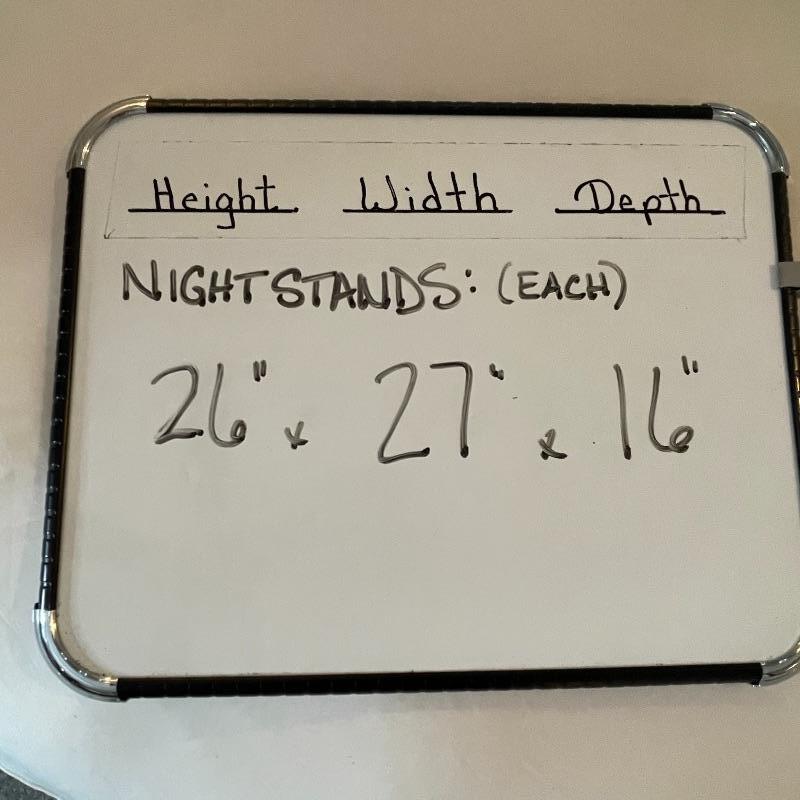 Height Width Depth
NIGHTSTANDS: (EACH)
26" x 27" x 16"